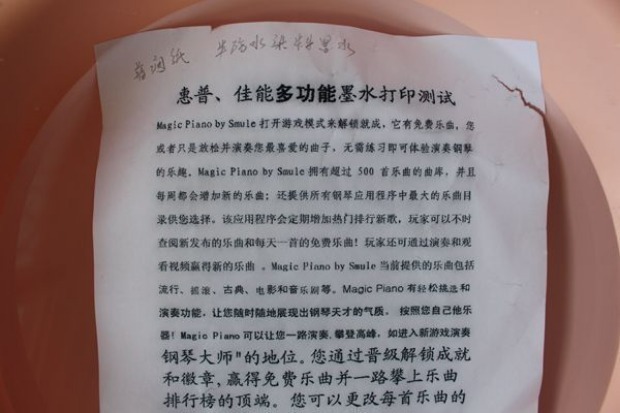 半防水染料墨水
惠普、佳能多功能墨水打印测试
Magic Piano by Smule 打开游戏模式来解锁就成，它有免费乐曲，您
或者只是放松并演奏您最喜爱的曲子，无需练习即可体验演奏钢琴
的乐趣，Magic Piano by Smule 拥有超过 500 首乐曲的曲库，并且
每周都会增加新的乐曲；还提供所有钢琴应用程序中最大的乐曲目
录供您选择。该应用程序会定期增加热门排行新歌，玩家可以不时
查阅新发布的乐曲和每天一首的免费乐曲！玩家还可通过演奏和观
看视频赢得新的乐曲 。Magic Piano by Smule 当前提供的乐曲包括
流行、摇滚、古典、电影和音乐剧等。Magic Piano 有轻松挑选和
演奏功能，让您随时随地展现出钢琴天才的气质。 按照您自己他乐
器！Magic Piano 可以让您一路演奏，攀登高峰，如进入新游戏演奏
钢琴大师"的地位。您通过晋级解锁成就
和徽章，赢得免费乐曲并一路攀上乐曲
排行榜的顶端。您可以更改每首乐曲的